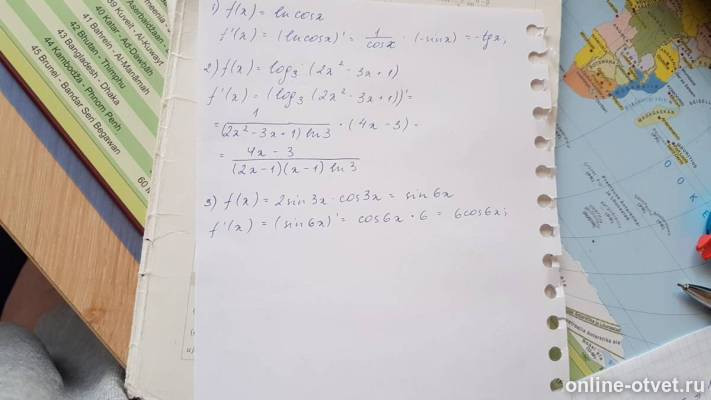 1) f(x) = ln cosx
f'(x) = (ln cosx)' = 1/cosx · (-sinx) = -tgx;
2) f(x) = log₃ (2x² - 3x + 1)
f'(x) = (log₃ (2x² - 3x + 1))' =
= 1/(2x² - 3x + 1) ln3 · (4x - 3) =
= 4x - 3/(2x-1)(x-1) ln3
3) f(x) = 2sin3x · cos3x = sin6x
f'(x) = (sin6x)' = cos6x · 6 = 6cos6x;
39 Kuveit - Al-Kuwayt
40 Katar - Ad-Dawhah
41 Bahrein - Al-Manāmah
42 Bhutan - Thimphu
43 Bangladesh - Dhaka
44 Kambodza - Phnom Penh
45 Brunei - Bandar Seri Begawan
MADAGASKAR
online-otvet.ru